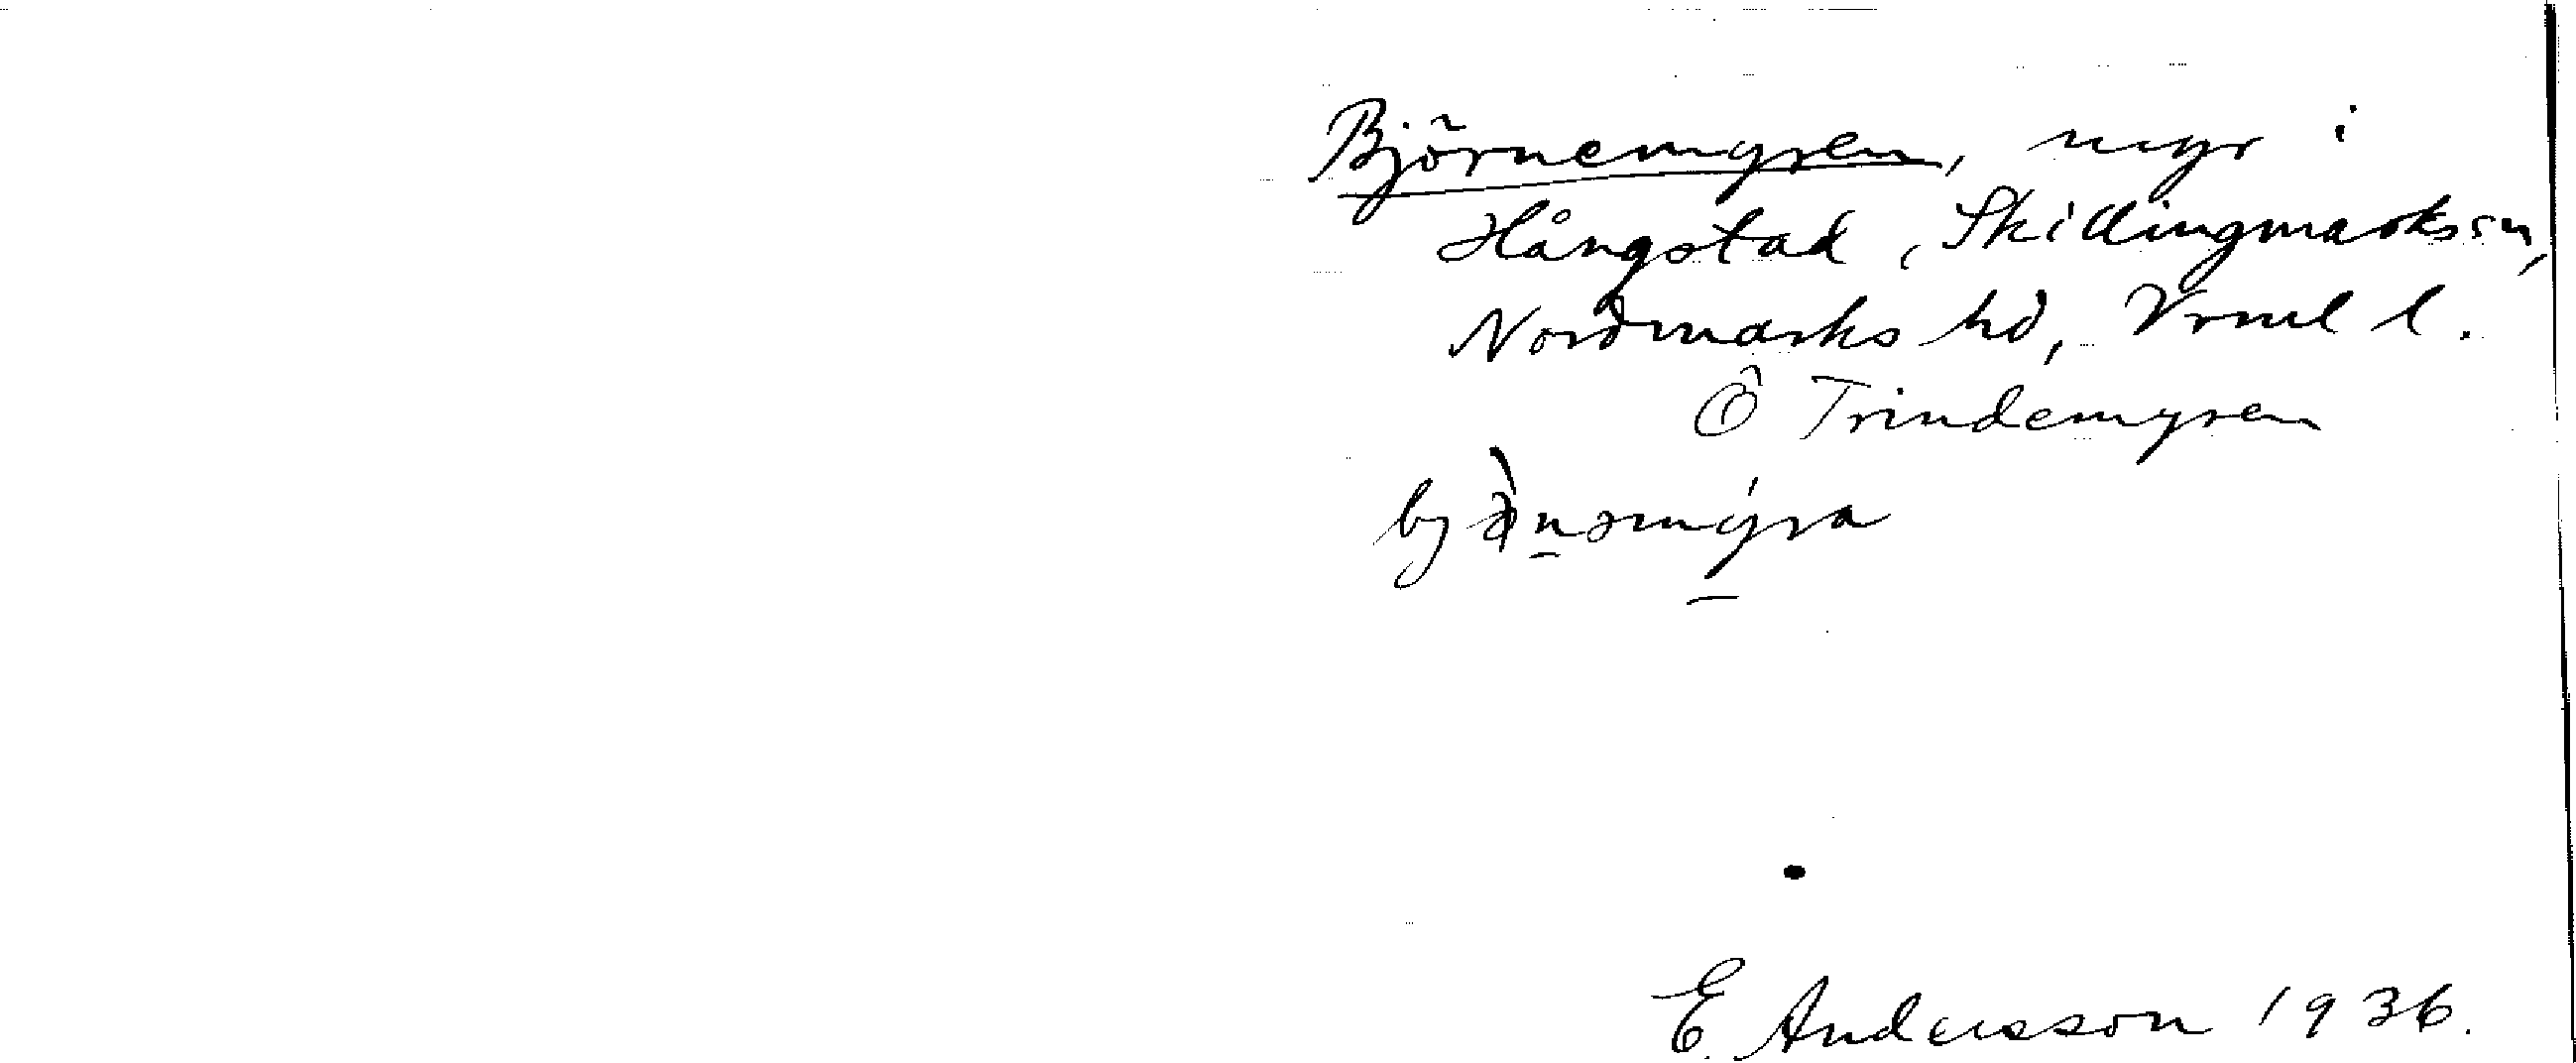 Björnemyren, myr i
Hångstad, Skillingmarks sn,
Nordmarks hd, Vrml l.
Ö Trindemyren
E. Andersson 1936.